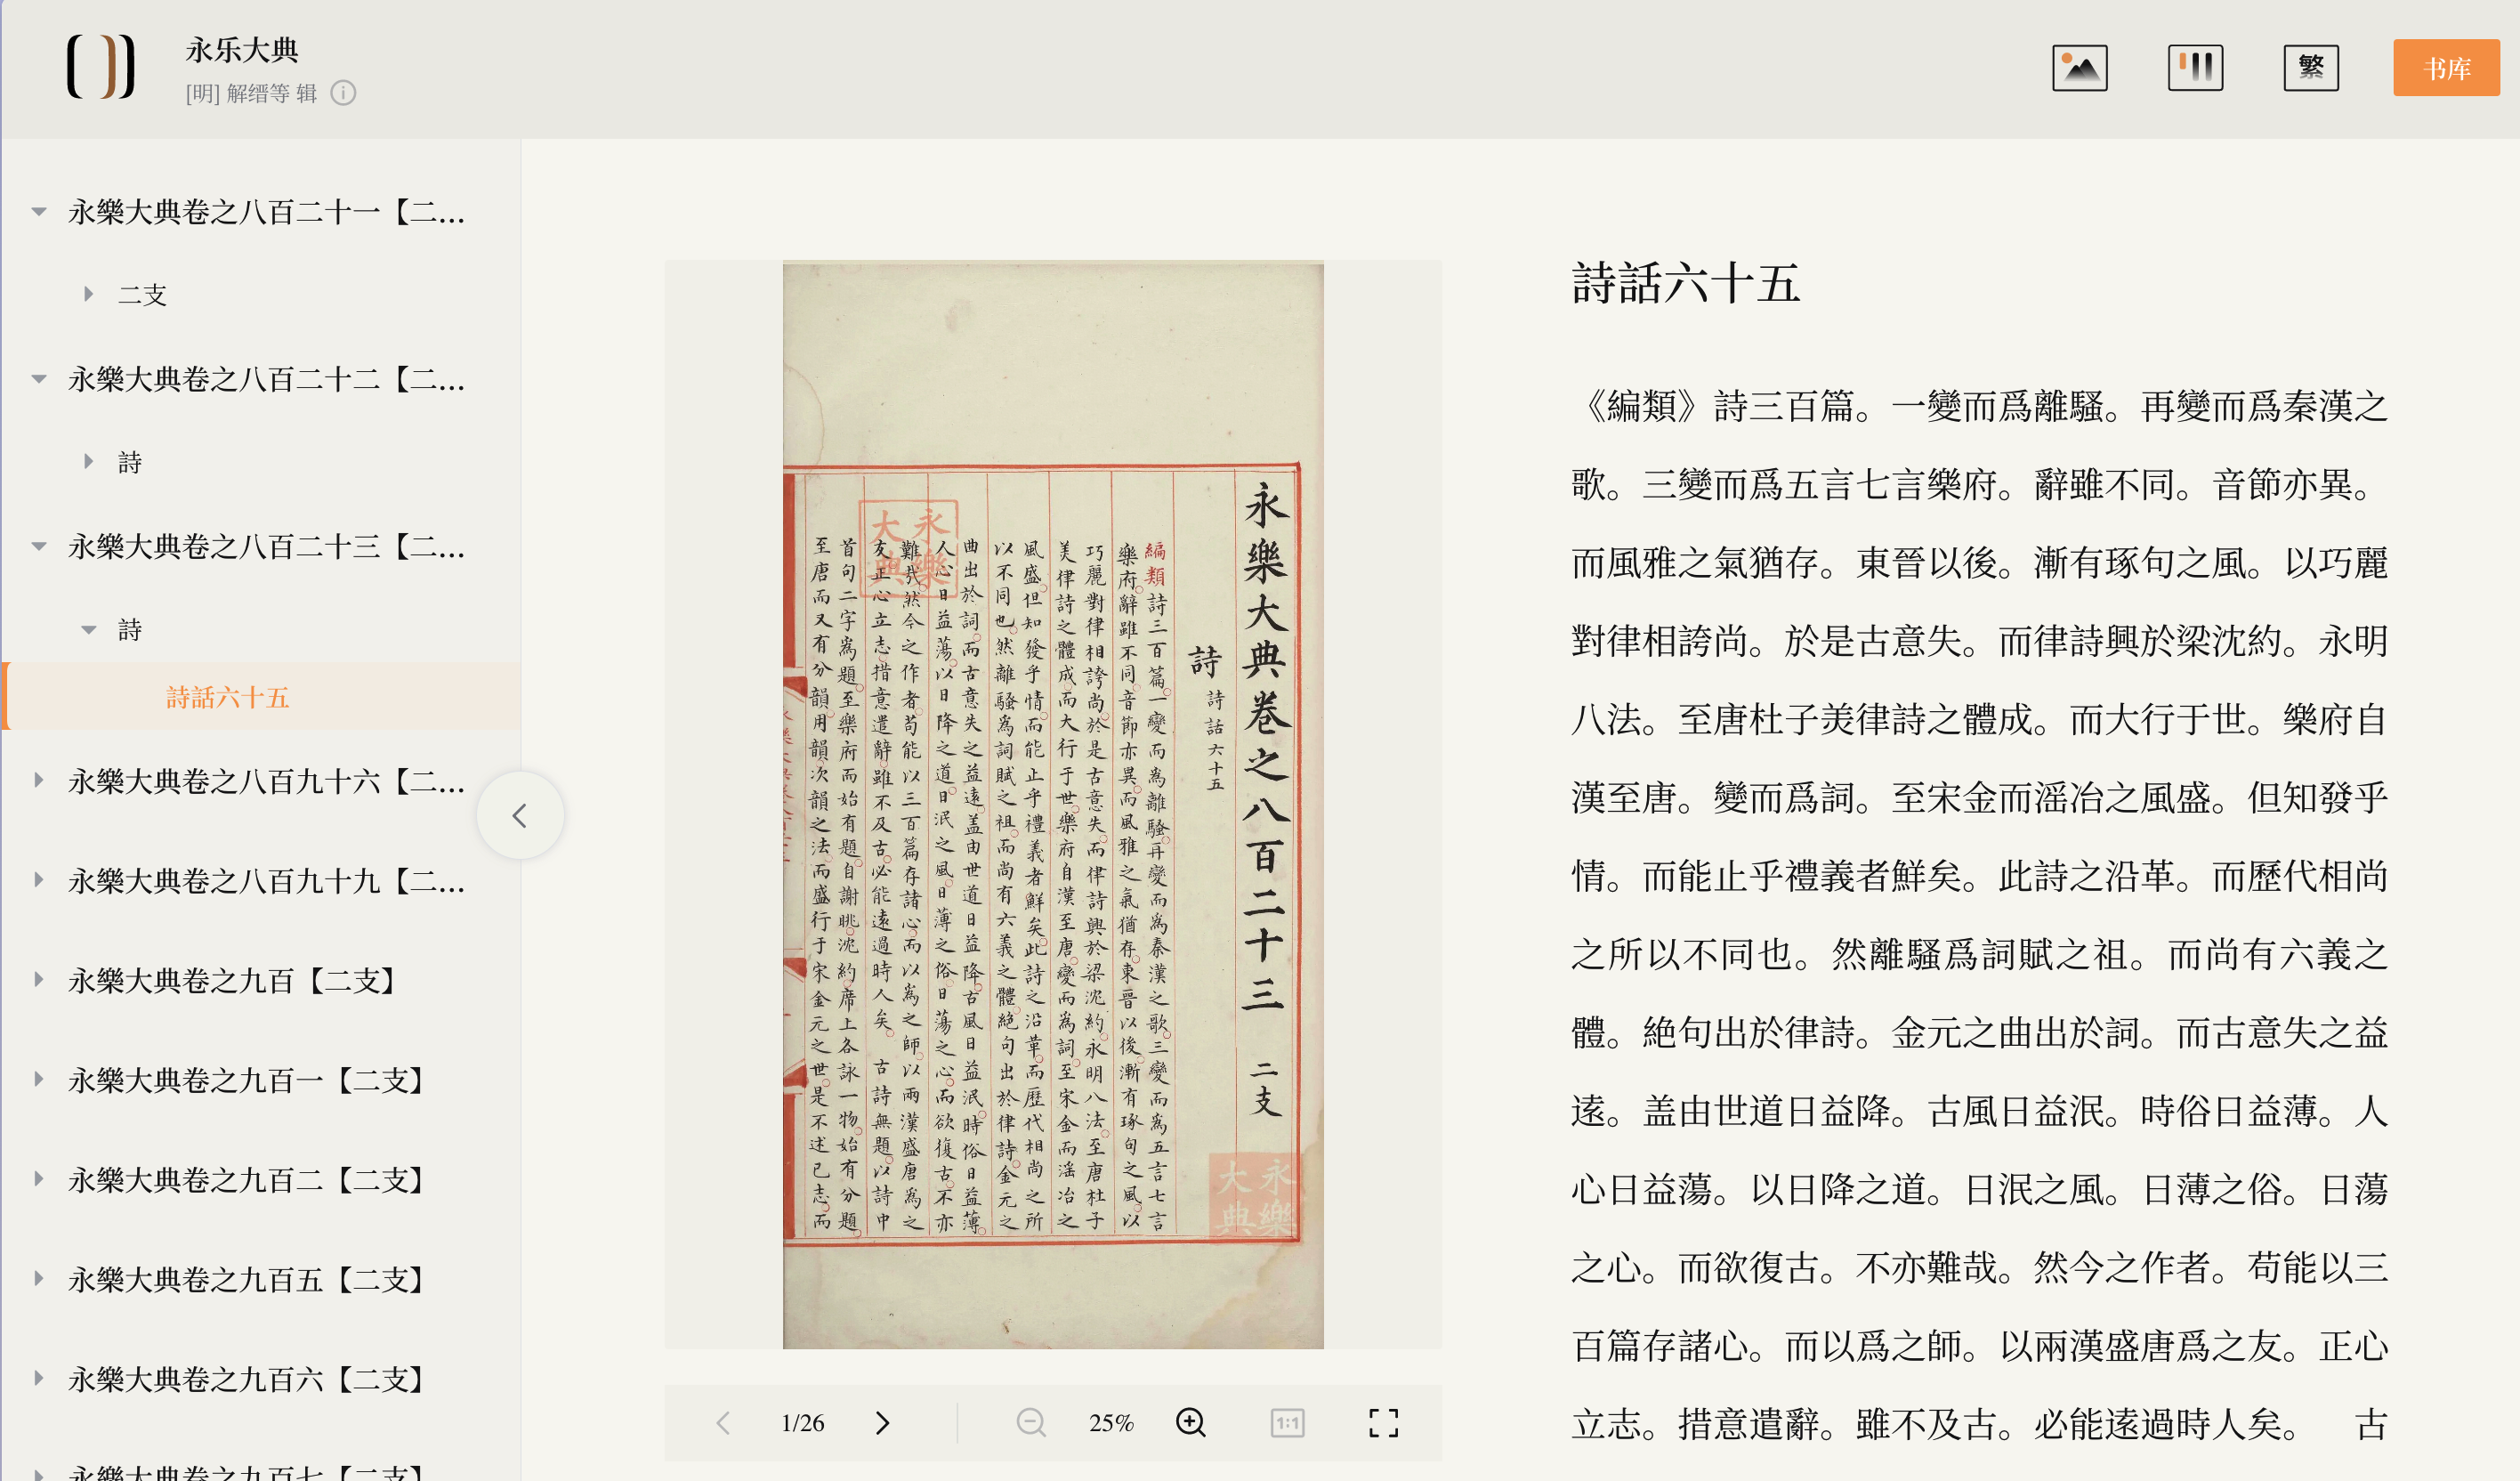 永乐大典
[明] 解缙等 辑
繁
书库
永樂大典卷之八百二十一【二...
二支
永樂大典卷之八百二十二【二...
詩
永樂大典卷之八百二十三【二...
詩
詩話六十五
永樂大典卷之八百九十六【二...
永樂大典卷之八百九十九【二...
永樂大典卷之九百【二支】
永樂大典卷之九百一【二支】
永樂大典卷之九百二【二支】
永樂大典卷之九百五【二支】
永樂大典卷之九百六【二支】
永樂大典卷之九百七【二支】
永樂大典卷之八百二十三 二支
詩 詩話六十五
編類詩三百篇一變而為離騷再變而為秦漢之歌三變而為五言七言
樂府辭雖不同音節亦異而風雅之氣猶存東晉以後漸有琢句之風以
巧麗對律相誇尚於是古意失而律詩興於梁沈約永明八法至唐杜子
美律詩之體成而大行于世樂府自漢至唐變而為詞至宋金而滛冶之
風盛但知發乎情而能止乎禮義者鮮矣此詩之沿革而歷代相尚之所
以不同也然離騷為詞賦之祖而尚有六義之體絕句出於律詩金元之
曲出於詞而古意失之益遠盖由世道日益降古風日益泯時俗日益薄
人心日益蕩以日降之道日泯之風日薄之俗日蕩之心而欲復古不亦
難哉然今之作者苟能以三百篇存諸心而以為之師以兩漢盛唐為之
友正心立志措意遣辭雖不及古必能遠過時人矣 古詩無題以詩中
首句二字為題至樂府而始有題自謝眺沈約席上各詠一物始有分題
至唐而又有分韻用韻次韻之法而盛行于宋金元之世是不述已志而
永樂大典
永樂大典
1/26
25%
1:1
詩話六十五
《編類》詩三百篇。一變而爲離騷。再變而爲秦漢之
歌。三變而爲五言七言樂府。辭雖不同。音節亦異。
而風雅之氣猶存。東晉以後。漸有琢句之風。以巧麗
對律相誇尚。於是古意失。而律詩興於梁沈約。永明
八法。至唐杜子美律詩之體成。而大行于世。樂府自
漢至唐。變而爲詞。至宋金而滛冶之風盛。但知發乎
情。而能止乎禮義者鮮矣。此詩之沿革。而歷代相尚
之所以不同也。然離騷爲詞賦之祖。而尚有六義之
體。絕句出於律詩。金元之曲出於詞。而古意失之益
遠。盖由世道日益降。古風日益泯。時俗日益薄。人
心日益蕩。以日降之道。日泯之風。日薄之俗。日蕩
之心。而欲復古。不亦難哉。然今之作者。苟能以三
百篇存諸心。而以爲之師。以兩漢盛唐爲之友。正心
立志。措意遣辭。雖不及古。必能遠過時人矣。 古